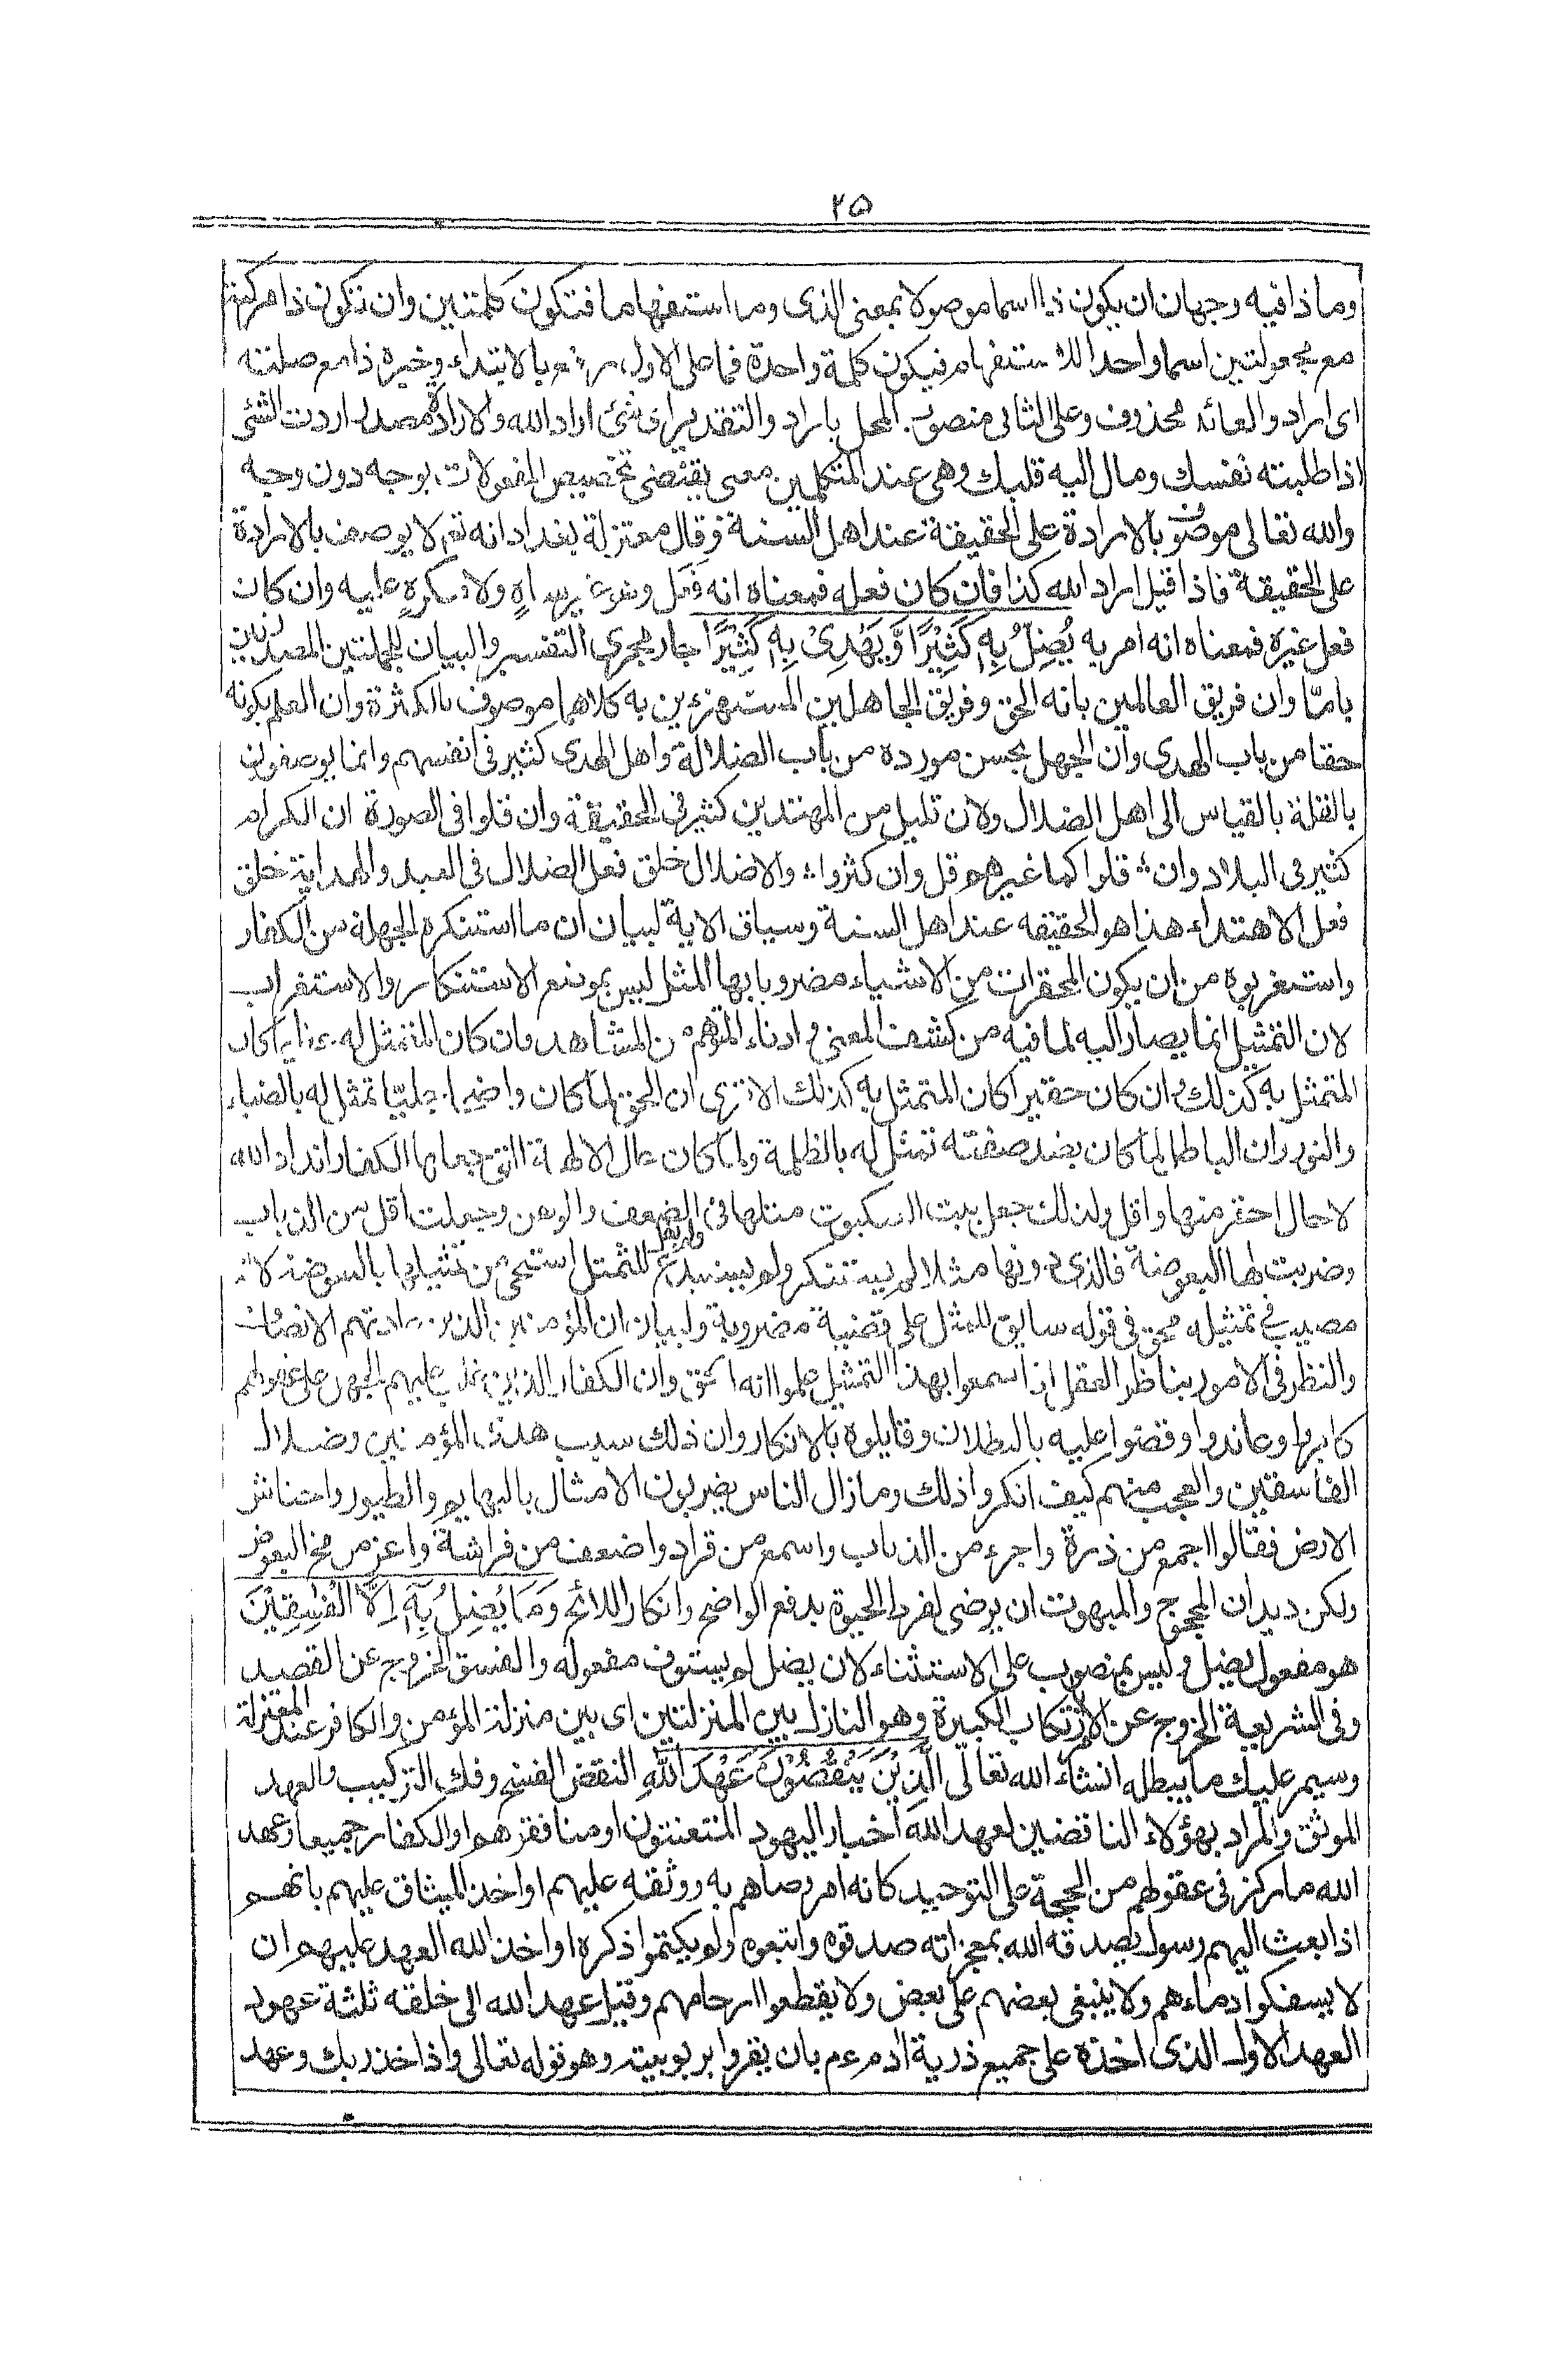 ٢٥
وماذا فيه وجهان ان يكون ذا اسما موصولا بمعنى الذى وما استفهاما فتكون كلمتين وان تكون ذا مركبة
مع مجعولتين اسما واحدا للاستفهام فيكون كلمة واحدة فما على الاول رفع بالابتداء وخبره ذا مع صلته
اى اراد والعائد محذوف وعلى الثانى منصوب المحل باراد والتقدير اى شئ اراد الله والارادة مصدر اردت الشئ
اذا طلبته نفسك ومال اليه قلبك وهى عند المتكلمين معنى يقتضى تخصيص المفعولات بوجه دون وجه
والله تعالى موصوف بالارادة على الحقيقة عند اهل السنة وقال معتزلة بغداد انه تع لا يوصف بالارادة
على الحقيقة فاذا قيل اراد الله كذا فان كان فعله فمعناه انه فعل وهو غير ساه ولا مكره عليه وان كان
فعل غيره فمعناه انه امر به يُضِلُّ بِهٖ كَثِيْرًا وَّيَهْدِىْ بِهٖ كَثِيْرًا جار مجرى التفسير والبيان للجملتين المصدرتين
بامّا وان فريق العالمين بانه الحق وفريق الجاهلين المستهزءين به كلاهما موصوف بالكثرة وان العلم بكونه
حقا من باب الهدى وان الجهل بحسن مورده من باب الضلالة واهل الهدى كثير فى انفسهم وانما يوصفون
بالقلة بالقياس الى اهل الضلال ولان قليل من المهتدين كثير فى الحقيقة وان قلوا فى الصورة ان الكرام
كثير فى البلاد وان ؞ قلوا كما غيرهم قل وان كثروا ؞ والاضلال خلق فعل الضلال فى العبد والهداية خلق
فعل الاهتداء هذا هو الحقيقه عند اهل السنة وسياق الاية لبيان ان ما استنكره الجهلة من الكفار
واستغربوه من ان يكون المحقرات من الاشياء مضروبا بها المثل ليس بموضع الاستنكار والاستغراب
لان التمثيل انما يصار اليه لما فيه من كشف المعنى وادناء المتوهم من المشاهد فان كان المتمثل له عظيما كان
المتمثل به كذلك وان كان حقيرا كان المتمثل به كذلك الا ترى ان الحق لما كان واضحا جليّا تمثل له بالضياء
والنور وان الباطل لما كان بضد صفته تمثل له بالظلمة ولما كان حال الالهة التى جعلها الكفار اندادا لله
لا حال احقر منها واقل ولذلك جعل بيت العنكبوت مثلها فى الضعف والوهن وجعلت اقل من الذباب
وضربت لها البعوضة فالذى دونها مثلا لم يستنكر ولم يستبدع ولم يقل للمتمثل استحى من تمثيلها بالبعوضة لانه
مصيب فى تمثيله محق فى قوله سايق للمثل على قضية مضروبة ولبيان ان المؤمنين الذين عادتهم الانصاف
والنظر فى الامور بناظر العقل اذا سمعوا بهذا التمثيل علموا انه الحق وان الكفار الذين غلب عليهم الجهل على عقولهم
كابروا وعاندوا وقضوا عليه بالبطلان وقابلوه بالانكار وان ذلك سبب هدى المؤمنين وضلال
الفاسقين والعجب منهم كيف انكروا ذلك وما زال الناس يضربون الامثال بالبهايم والطيور واحناش
الارض فقالوا اجمع من ذرة واجرء من الذباب واسمع من قراد واضعف من فراشة واعز من مخ البعوض
ولكن ديدان المحجوج والمبهوت ان يرضى لفرط الحيرة بدفع الواضح وانكار اللائح وَمَا يُضِلُّ بِهٖٓ اِلَّا الْفٰسِقِيْنَ
هو مفعول يضل وليس بمنصوب على الاستثناء لان يضل لم يستوف مفعوله والفسق الخروج عن القصد
وفى الشريعة الخروج عن الارتكاب الكبيرة وهو النازل بين المنزلتين اى بين منزلة المؤمن والكافر عند المعتزلة
وسيمر عليك ما يبطله انشاء الله تعالى الَّذِيْنَ يَنْقُضُوْنَ عَهْدَ اللّٰهِ النقض الفسخ وفك التركيب والعهد
الموثق والمراد بهؤلاء الناقضين لعهد الله احبار اليهود المتعنتون او منافقوهم او الكفار جميعا وعهد
الله ما ركز فى عقولهم من الحجة على التوحيد كانه امر وصاهم به ووثقه عليهم او اخذ الميثاق عليهم بانهم
اذا بعث اليهم رسول يصدقه الله بمعجزاته صدقوه واتبعوه ولم يكتموا ذكره او اخذ الله العهد عليهم ان
لا يسفكوا دماءهم ولا يبغى بعضهم على بعض ولا يقطعوا ارحامهم وقيل عهد الله الى خلقه ثلثة عهود
العهد الاول الذى اخذه على جميع ذرية ادم عم بان يقروا بربوبيته وهو قوله تعالى واذ اخذ ربك وعهد